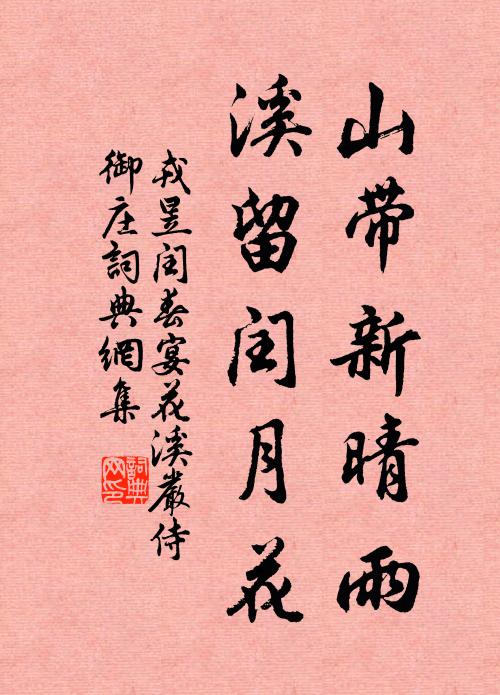 山带新晴雨
溪留闰月花
戎昱闰春宴花溪嚴侍
御庄詞典網集
詞典
网印